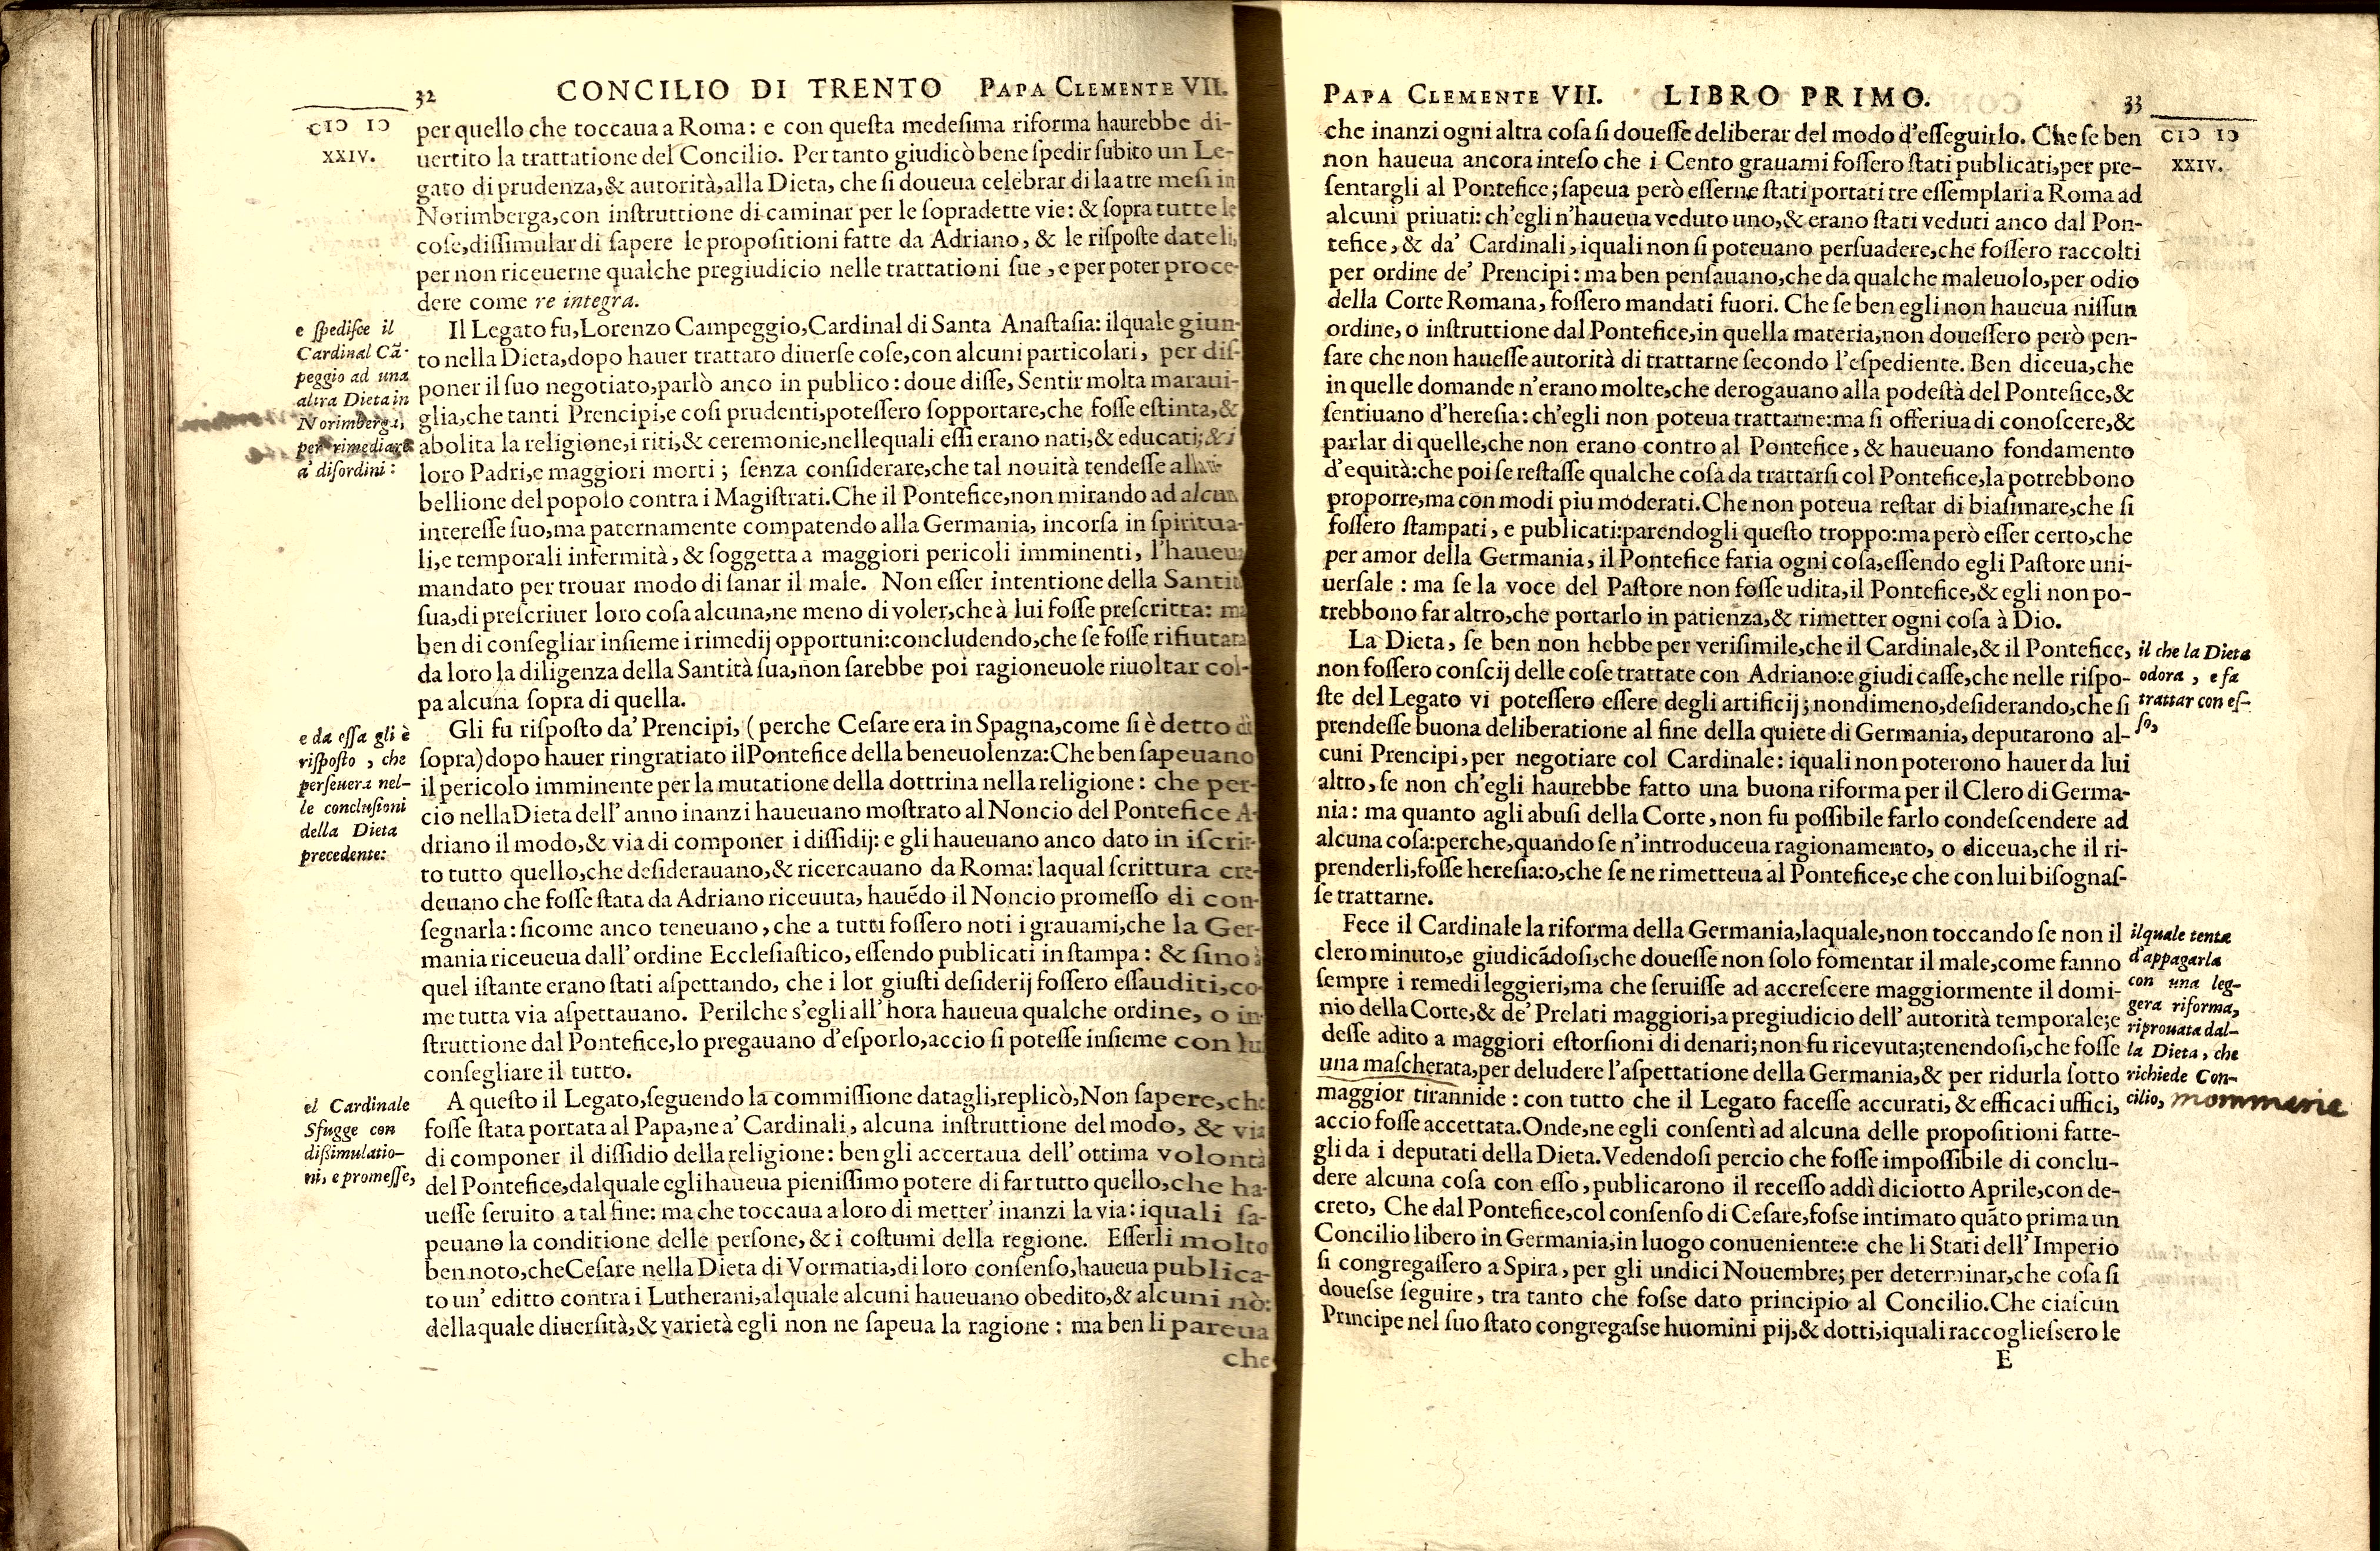 32 CONCILIO DI TRENTO PAPA CLEMENTE VII.
CIↃ IↃ
XXIV.
per quello che toccaua a Roma: e con queſta medeſima riforma haurebbe di-
uertito la trattatione del Concilio. Per tanto giudicò bene ſpedir ſubito un Le-
gato di prudenza,& autorità,alla Dieta, che ſi doueua celebrar di la a tre meſi in
Norimberga,con inſtruttione di caminar per le ſopradette vie: & ſopra tutte le
coſe,diſſimular di ſapere le propoſitioni fatte da Adriano, & le riſpoſte dateli,
per non riceuerne qualche pregiudicio nelle trattationi ſue , e per poter proce-
dere come re integra.
e ſpediſce il
Cardinal Cã-
peggio ad una
altra Dieta in
Norimberga,
per rimediare
a' diſordini:
Il Legato fu,Lorenzo Campeggio,Cardinal di Santa Anaſtaſia: ilquale giun-
to nella Dieta,dopo hauer trattato diuerſe coſe,con alcuni particolari, per diſ-
poner il ſuo negotiato,parlò anco in publico : doue diſſe, Sentir molta maraui-
glia,che tanti Prencipi,e coſi prudenti,poteſſero ſopportare,che foſſe eſtinta,&
abolita la religione,i riti,& ceremonie,nellequali eſſi erano nati,& educati;& i
loro Padri,e maggiori morti ; ſenza conſiderare,che tal nouità tendeſſe alla
bellione del popolo contra i Magiſtrati.Che il Pontefice,non mirando ad alcun
intereſſe ſuo,ma paternamente compatendo alla Germania, incorſa in ſpiritua-
li,e temporali infermità, & ſoggetta a maggiori pericoli imminenti, l'haueua
mandato per trouar modo di ſanar il male. Non eſſer intentione della Santità
ſua,di preſcriuer loro coſa alcuna,ne meno di voler,che à lui foſſe preſcritta: ma
ben di conſegliar inſieme i rimedij opportuni:concludendo,che ſe foſſe rifiutata
da loro la diligenza della Santità ſua,non ſarebbe poi ragioneuole riuoltar col-
pa alcuna ſopra di quella.
e da eſſa gli è
riſpoſto , che
perſeuera nel-
le concluſioni
della Dieta
precedente:
Gli fu riſpoſto da' Prencipi, (perche Ceſare era in Spagna,come ſi è detto di
ſopra)dopo hauer ringratiato il Pontefice della beneuolenza:Che ben ſapeuano
il pericolo imminente per la mutatione della dottrina nella religione : che per-
cio nella Dieta dell' anno inanzi haueuano moſtrato al Noncio del Pontefice A-
driano il modo,& via di componer i diſſidij: e gli haueuano anco dato in iſcrit-
to tutto quello,che deſiderauano,& ricercauano da Roma: laqual ſcrittura cre-
deuano che foſſe ſtata da Adriano riceuuta, hauẽdo il Noncio promeſſo di con-
ſegnarla : ſicome anco teneuano, che a tutti foſſero noti i grauami,che la Ger-
mania riceueua dall' ordine Eccleſiaſtico, eſſendo publicati in ſtampa : & ſino à
quel iſtante erano ſtati aſpettando, che i lor giuſti deſiderij foſſero eſſauditi,co-
me tutta via aſpettauano. Perilche s'egli all' hora haueua qualche ordine, o in-
ſtruttione dal Pontefice,lo pregauano d'eſporlo,accio ſi poteſſe inſieme con lui
conſegliare il tutto.
el Cardinale
Sfugge con
diſſimulatio-
ni, e promeſſe,
A queſto il Legato,ſeguendo la commiſſione datagli,replicò,Non ſapere,che
foſſe ſtata portata al Papa,ne a' Cardinali, alcuna inſtruttione del modo, & via
di componer il diſſidio della religione: ben gli accertaua dell' ottima volontà
del Pontefice,dalquale egli haueua pieniſſimo potere di far tutto quello,che ha-
ueſſe ſeruito a tal fine: ma che toccaua a loro di metter' inanzi la via: iquali ſa-
peuano la conditione delle perſone, & i coſtumi della regione. Eſſerli molto
ben noto,che Ceſare nella Dieta di Vormatia,di loro conſenſo,haueua publica-
to un' editto contra i Lutherani,alquale alcuni haueuano obedito,& alcuni nò:
dellaquale diuerſità,& varietà egli non ne ſapeua la ragione : ma ben li pareua
che
PAPA CLEMENTE VII. LIBRO PRIMO. 33
CIↃ IↃ
XXIV.
che inanzi ogni altra coſa ſi doueſſe deliberar del modo d'eſſeguirlo. Che ſe ben
non haueua ancora inteſo che i Cento grauami foſſero ſtati publicati,per pre-
ſentargli al Pontefice; ſapeua però eſſerne ſtati portati tre eſſemplari a Roma ad
alcuni priuati: ch'egli n'haueua veduto uno,& erano ſtati veduti anco dal Pon-
tefice, & da' Cardinali, iquali non ſi poteuano perſuadere,che foſſero raccolti
per ordine de' Prencipi : ma ben penſauano,che da qualche maleuolo,per odio
della Corte Romana, foſſero mandati fuori. Che ſe ben egli non haueua niſſun
ordine, o inſtruttione dal Pontefice,in quella materia,non doueſſero però pen-
ſare che non haueſſe autorità di trattarne ſecondo l'eſpediente. Ben diceua,che
in quelle domande n'erano molte,che derogauano alla podeſtà del Pontefice,&
ſentiuano d'hereſia: ch'egli non poteua trattarne:ma ſi offeriua di conoſcere,&
parlar di quelle,che non erano contro al Pontefice, & haueuano fondamento
d'equità:che poi ſe reſtaſſe qualche coſa da trattarſi col Pontefice,la potrebbono
proporre,ma con modi piu moderati.Che non poteua reſtar di biaſimare,che ſi
foſſero ſtampati, e publicati:parendogli queſto troppo:ma però eſſer certo,che
per amor della Germania, il Pontefice faria ogni coſa,eſſendo egli Paſtore uni-
uerſale : ma ſe la voce del Paſtore non foſſe udita,il Pontefice,& egli non po-
trebbono far altro,che portarlo in patienza,& rimetter ogni coſa à Dio.
La Dieta, ſe ben non hebbe per veriſimile,che il Cardinale,& il Pontefice,
non foſſero conſcij delle coſe trattate con Adriano:e giudicaſſe,che nelle riſpo-
ſte del Legato vi poteſſero eſſere degli artificij; nondimeno,deſiderando,che ſi
prendeſſe buona deliberatione al fine della quiete di Germania, deputarono al-
cuni Prencipi, per negotiare col Cardinale : iquali non poterono hauer da lui
altro, ſe non ch'egli haurebbe fatto una buona riforma per il Clero di Germa-
nia : ma quanto agli abuſi della Corte, non fu poſſibile farlo condeſcendere ad
alcuna coſa:perche,quando ſe n'introduceua ragionamento, o diceua,che il ri-
prenderli,foſſe hereſia:o,che ſe ne rimetteua al Pontefice,e che con lui biſognaſ-
ſe trattarne.
il che la Dieta
odora , e fa
trattar con eſ-
ſo,
Fece il Cardinale la riforma della Germania,laquale,non toccando ſe non il
clero minuto,e giudicãdoſi,che doueſſe non ſolo fomentar il male,come fanno
ſempre i remedi leggieri,ma che ſeruiſſe ad accreſcere maggiormente il domi-
nio della Corte,& de' Prelati maggiori,a pregiudicio dell' autorità temporale;e
deſſe adito a maggiori eſtorſioni di denari;non fu ricevuta;tenendoſi,che foſſe
una maſcherata,per deludere l'aſpettatione della Germania,& per ridurla ſotto
maggior tirannide : con tutto che il Legato faceſſe accurati, & efficaci uffici,
accio foſſe accettata.Onde,ne egli conſentì ad alcuna delle propoſitioni fatte-
gli da i deputati della Dieta.Vedendoſi percio che foſſe impoſſibile di conclu-
dere alcuna coſa con eſſo, publicarono il receſſo addì diciotto Aprile,con de-
creto, Che dal Pontefice,col conſenſo di Ceſare,foſse intimato quãto prima un
Concilio libero in Germania,in luogo conueniente:e che li Stati dell' Imperio
ſi congregaſſero a Spira, per gli undici Nouembre; per determinar,che coſa ſi
doueſse ſeguire, tra tanto che foſse dato principio al Concilio.Che ciaſcun
Principe nel ſuo ſtato congregaſse huomini pij,& dotti,iquali raccoglieſsero le
ilquale tenta
d'appagarla
con una leg-
gera riforma,
riprouata dal-
la Dieta, che
richiede Con-
cilio, mommerie
E